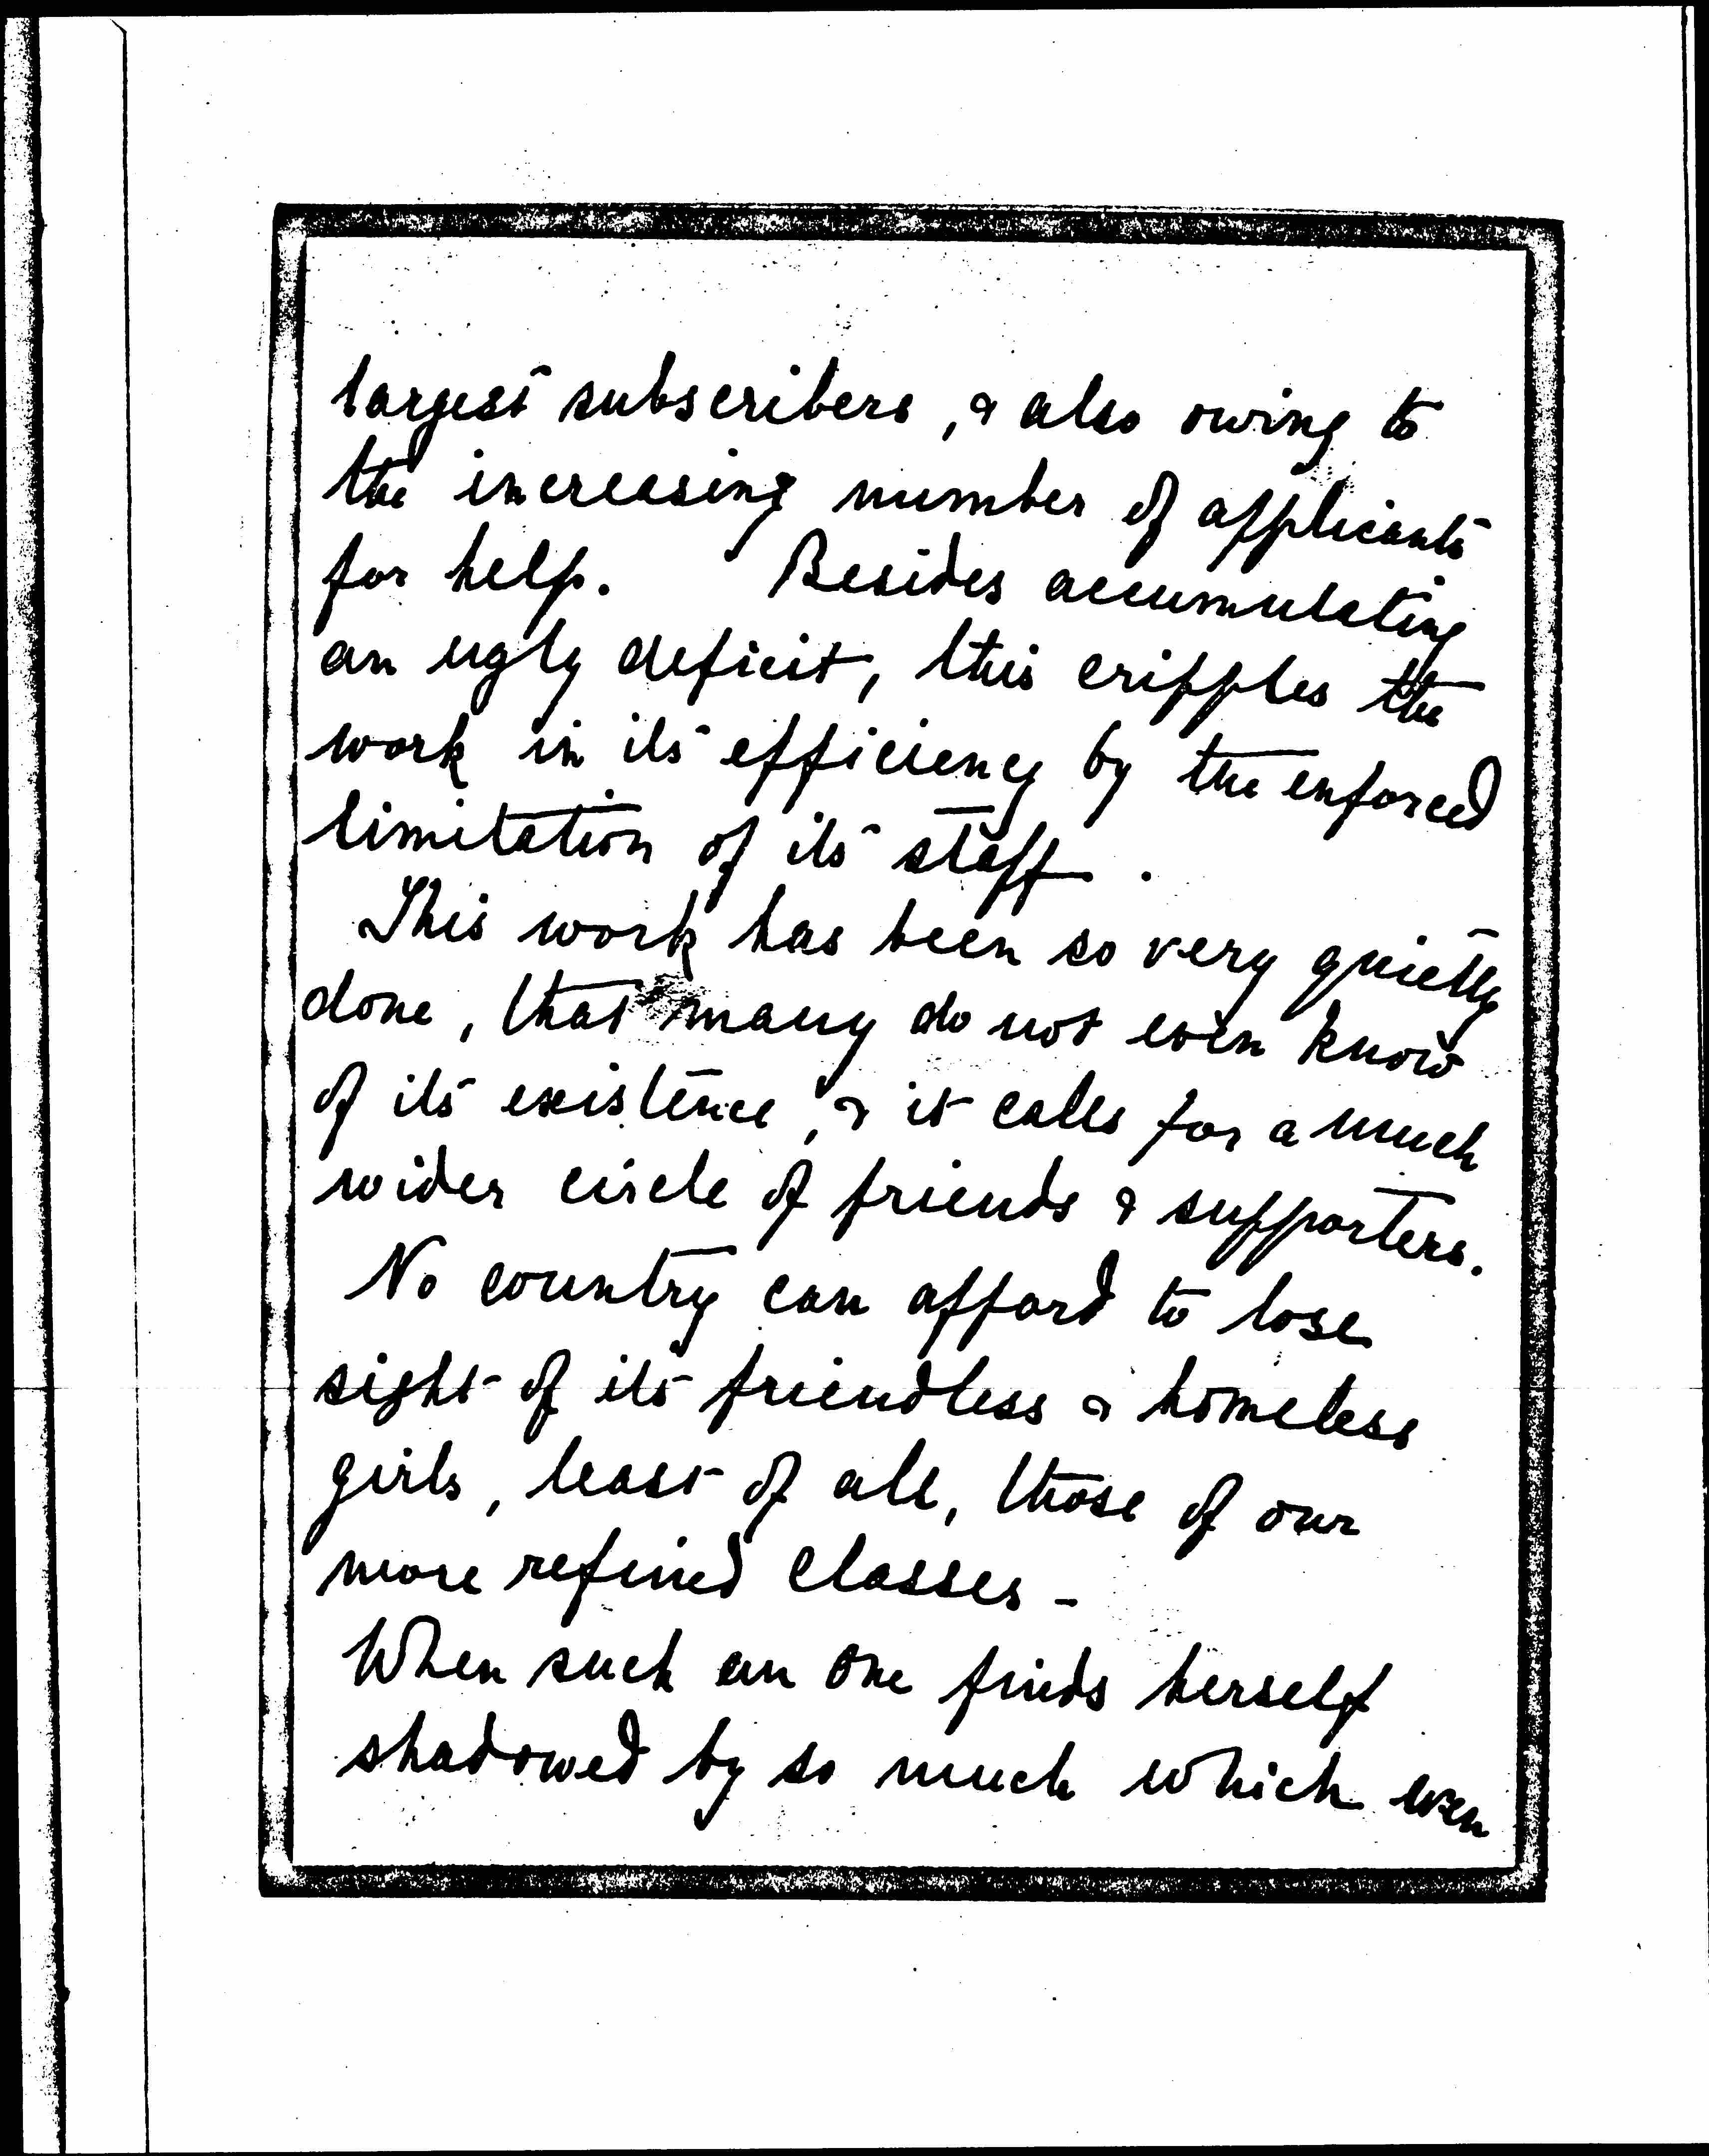 largest subscribers, & also owing to
the increasing number of applicants
for help. Besides accumulating
an ugly deficit, this cripples the
work in its efficiency by the enforced
limitation of its staff.
This work has been so very quietly
done, that many do not even know
of its existence, & it calls for a much
wider circle of friends & supporters.
No country can afford to lose
sight of its friendless & homeless
girls, least of all, those of our
more refined classes -
When such an one finds herself
shadowed by so much which even